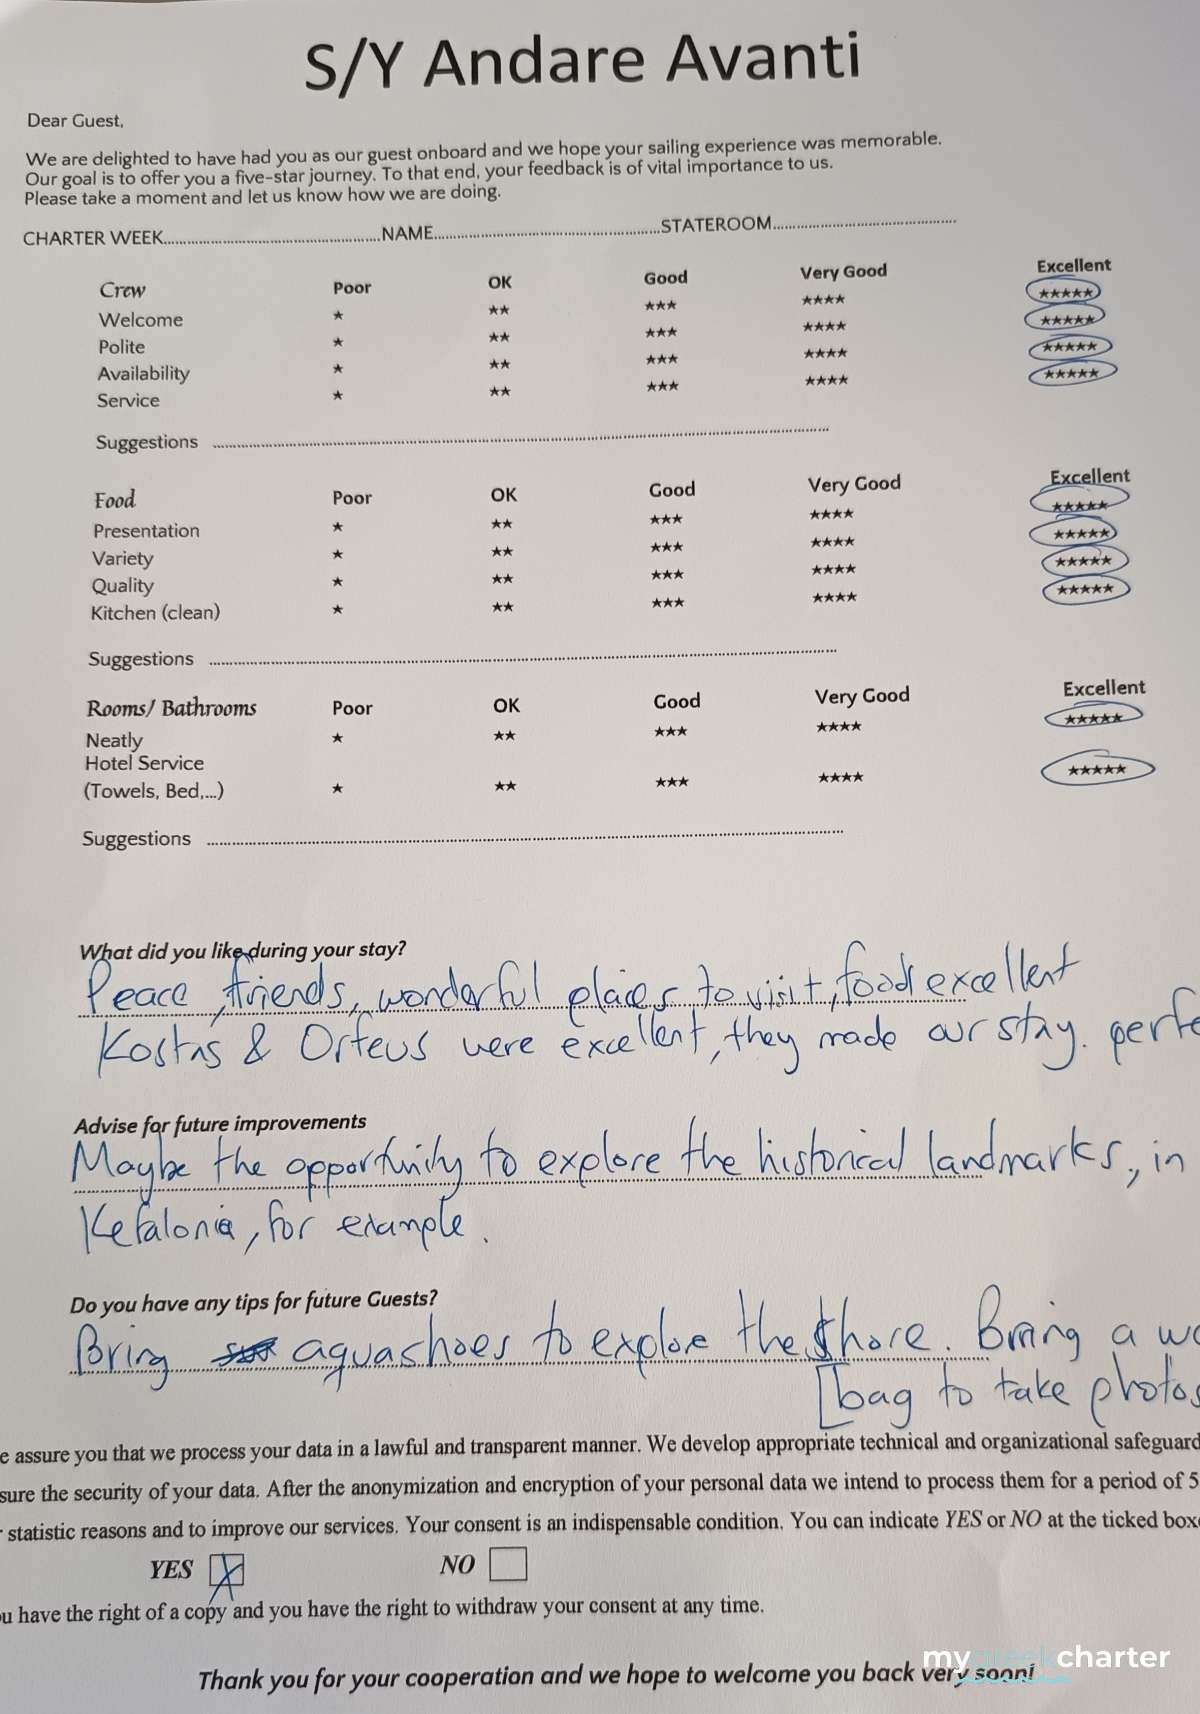 S/Y Andare Avanti
Dear Guest,
We are delighted to have had you as our guest onboard and we hope your sailing experience was memorable.
Our goal is to offer you a five-star journey. To that end, your feedback is of vital importance to us.
Please take a moment and let us know how we are doing.
CHARTER WEEK.....................NAME.....................STATEROOM.....................
Crew Poor OK Good Very Good Excellent
Welcome ★ ★★ ★★★ ★★★★ ★★★★★
Polite ★ ★★ ★★★ ★★★★ ★★★★★
Availability ★ ★★ ★★★ ★★★★ ★★★★★
Service ★ ★★ ★★★ ★★★★ ★★★★★
Suggestions .....................
Food Poor OK Good Very Good Excellent
Presentation ★ ★★ ★★★ ★★★★ ★★★★★
Variety ★ ★★ ★★★ ★★★★ ★★★★★
Quality ★ ★★ ★★★ ★★★★ ★★★★★
Kitchen (clean) ★ ★★ ★★★ ★★★★ ★★★★★
Suggestions .....................
Rooms/ Bathrooms Poor OK Good Very Good Excellent
Neatly ★ ★★ ★★★ ★★★★ ★★★★★
Hotel Service
(Towels, Bed,...) ★ ★★ ★★★ ★★★★ ★★★★★
Suggestions .....................
What did you like during your stay?
Peace, friends, wonderful places to visit, food excellent
Kostas & Orfeus were excellent, they made our stay. perfe
Advise for future improvements
Maybe the opportunity to explore the historical landmarks, in
Kefalonia, for example.
Do you have any tips for future Guests?
Bring aquashoes to explore the shore. Bring a
[bag to take photos
e assure you that we process your data in a lawful and transparent manner. We develop appropriate technical and organizational safeguard
sure the security of your data. After the anonymization and encryption of your personal data we intend to process them for a period of 5
statistic reasons and to improve our services. Your consent is an indispensable condition. You can indicate YES or NO at the ticked box
YES X NO
ou have the right of a copy and you have the right to withdraw your consent at any time.
mygreekcharter
Thank you for your cooperation and we hope to welcome you back very soon!